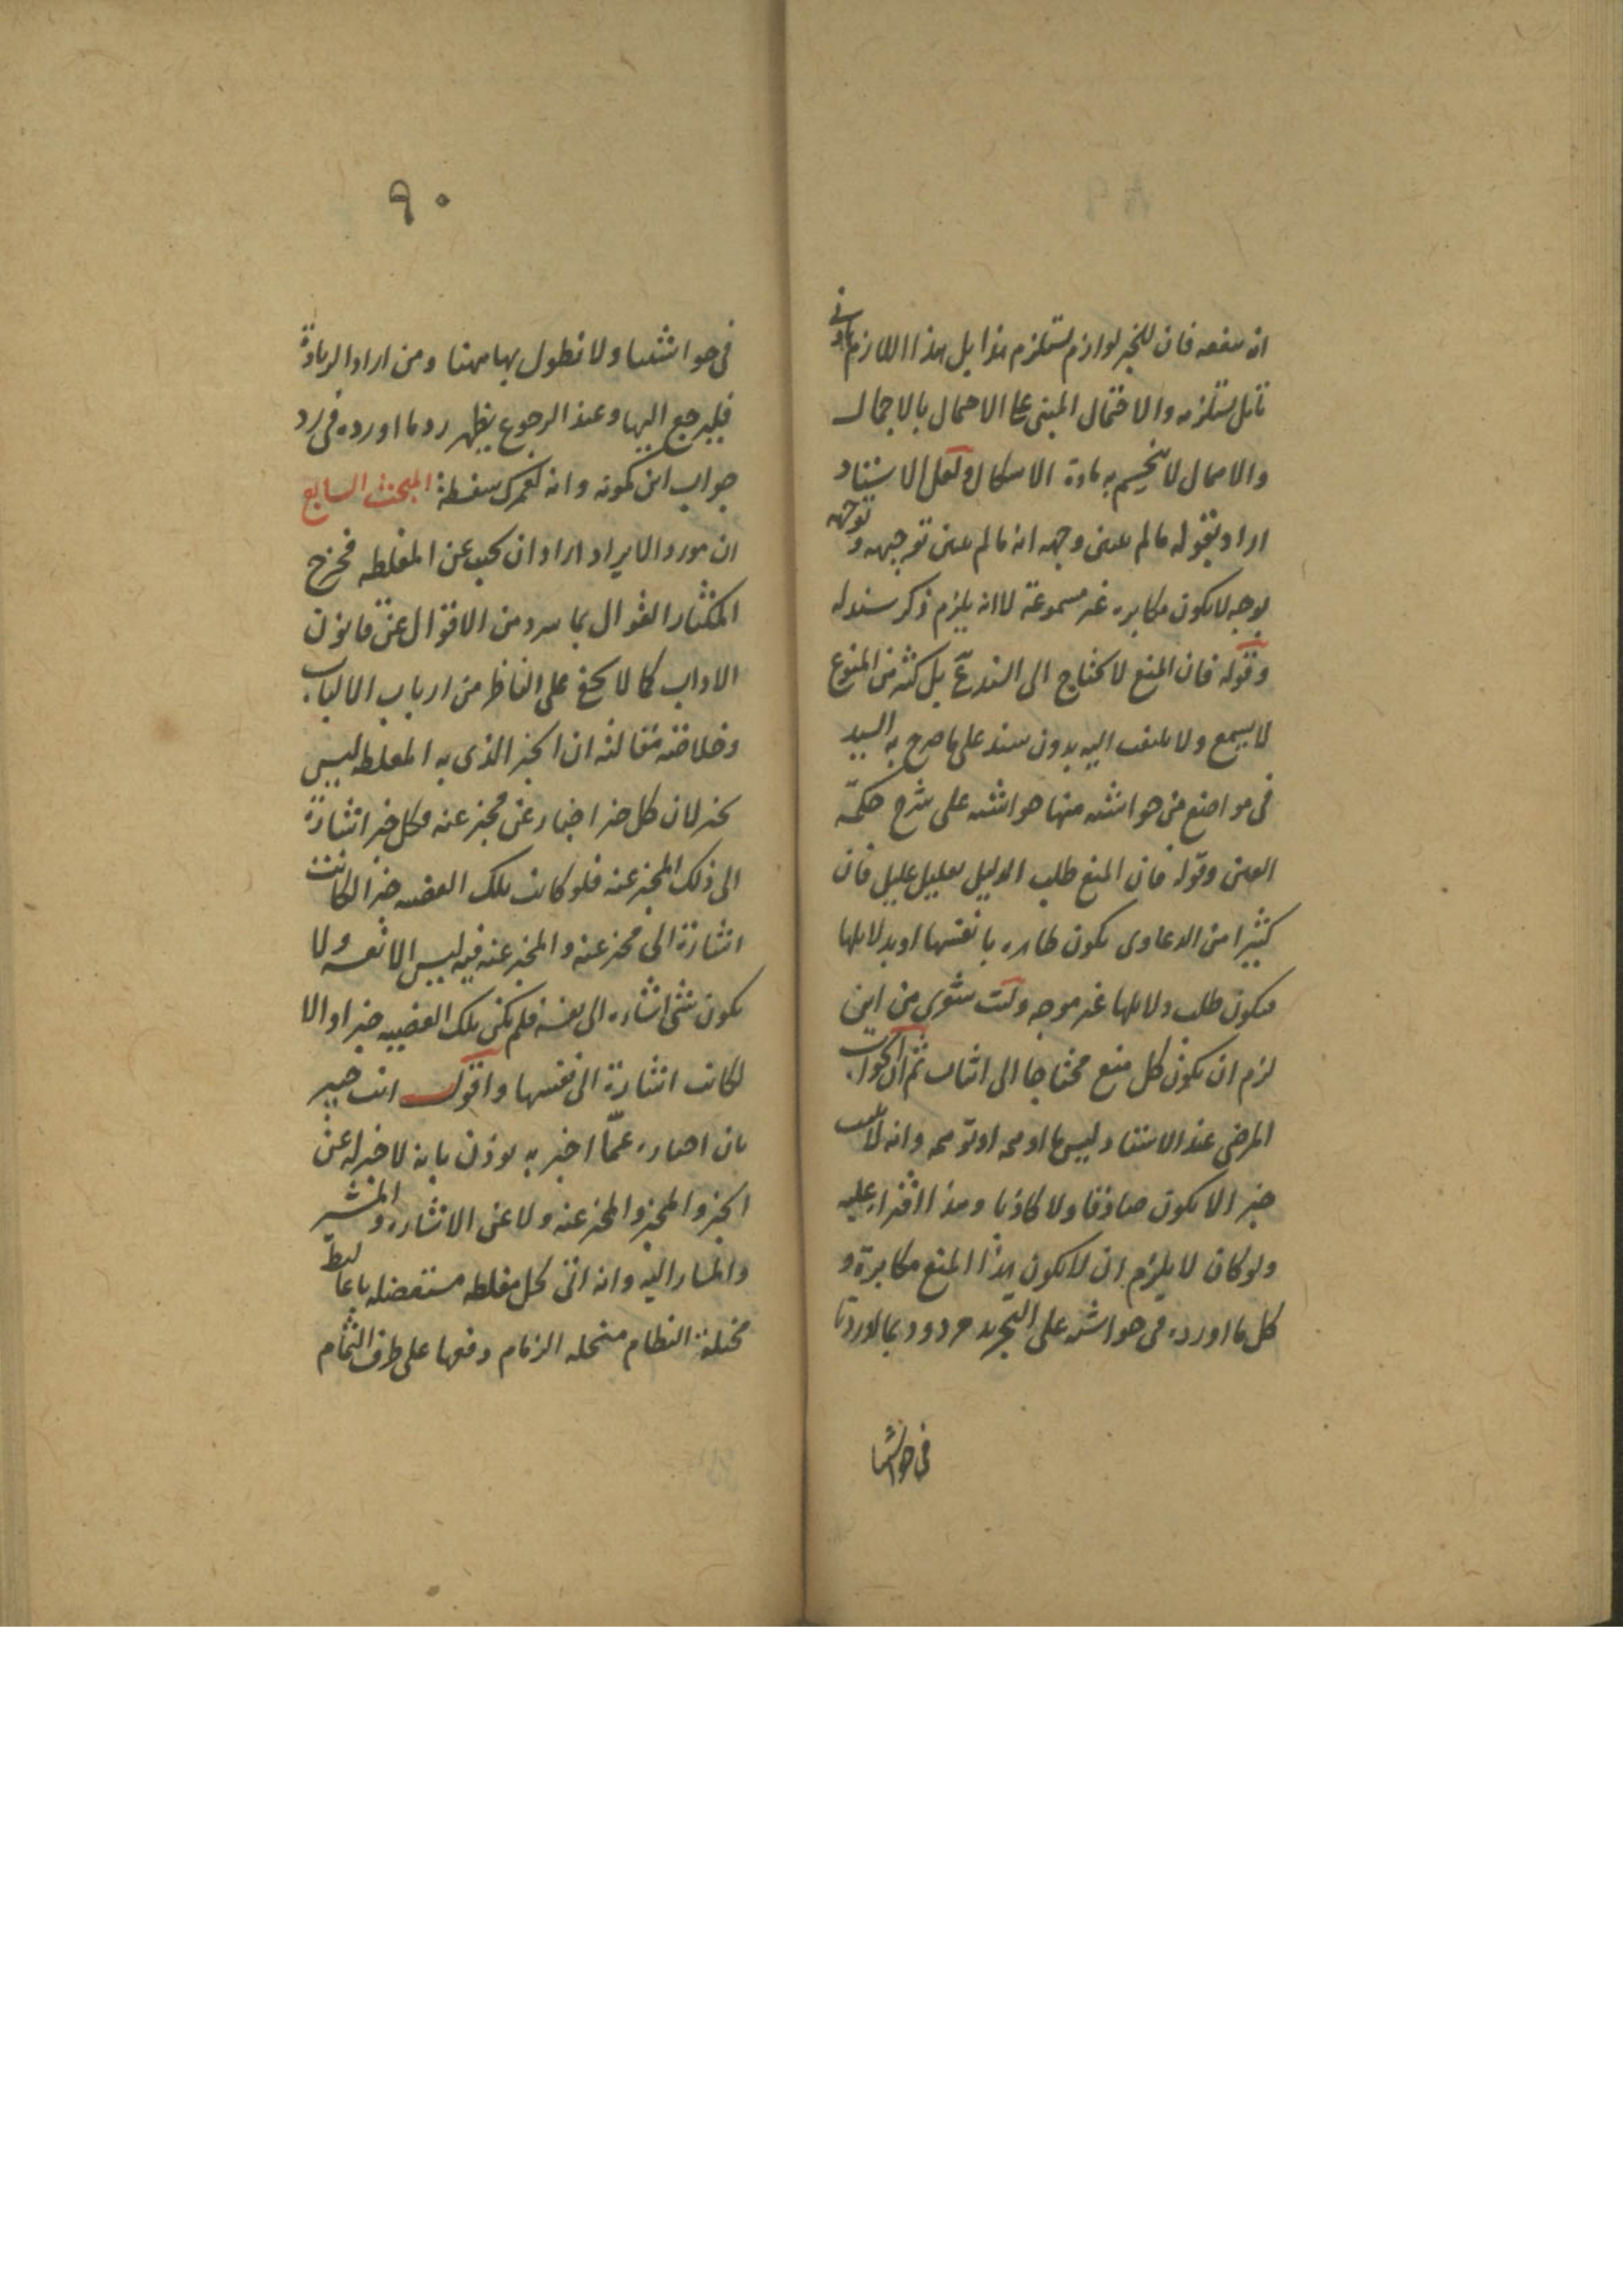 ان ينفعه فان للخبر لوازم تستلزم هذا بل هذا اللازم بادنى
تامل يستلزمه والاحتمال المبنى على الاحمال بالاجمال
والاهمال لا ينحسم به مادة الاشكال ولعل الاستناد
اراد بقوله مالم يبين وجهه انه مالم يبين توجيهه وتوجهه
بوجه لا يكون مكابره غير مسموعة لا انه يلزم ذكر سند له
وقوله فان المنع لا يحتاج الى السند عّ بل كثير من المنوع
لا يسمع ولا يلتفت اليه بدون سند على ما صرح به السيد
فى مواضع من حواشيه منها حواشيه على شرح حكمة
العين وقوله فان المنع طلب الدليل تعليل عليل فان
كثيرا من الدعاوى يكون ظاهره بانفسها او بدلايلها
فيكون طلب دلايلها غير موجه وليت شعرى من اين
لزم ان يكون كل منع محتاجا الى اثبات ثم ان الجواب
المرضى عند الاستناد ليس ما اومى او توهمه وانه لا يجب
خبر الا يكون صادقا ولا كاذبا وهذا افتراء عليه
ولو كان لا يلزم ان لا يكون هذا المنع مكابرة و
كل ما اورده فى حواشيه على التجريد مردود بما اوردنا
فى حواشينا
٩٠
فى حواشينا ولا نطول بها ههنا ومن اراد الزيادة
فليرجع اليها وعند الرجوع يظهر رد ما اورده فى رد
جواب ابن كمونه وانه لعمرك سفسطة المبحث السابع
ان مورد الايراد اراد ان يجيب عن المغلطه فخرج
المكثار القوال بما سرد من الاقوال عن قانون
الاداب كما لا يخفى على الناظر من ارباب الالباب
وخلاصة مقالته ان الخبر الذى به المغلطه ليس
بخبر لان كل خبر اخبار عن مخبر عنه وكل خبر اشارة
الى ذلك المخبر عنه فلو كانت تلك القضيه خبرا لكانت
اشارة الى مخبر عنه والمخبر عنه فيه ليس الا نفسه ولا
يكون شئ اشاره الى نفسه فلم يكن تلك القضيه خبرا والا
لكانت اشارة الى نفسها واقول انت خبير
بان اخباره عمّا اخبر به يوذن بانه لا خبر له عن
الخبر والمخبر والمخبر عنه ولا عن الاشاره والمشير
والمشار اليه وانه اتى لحل مغلطه مستعضله باغاليط
مختلة النظام منحله الزمام دفعها على طرف الثمام